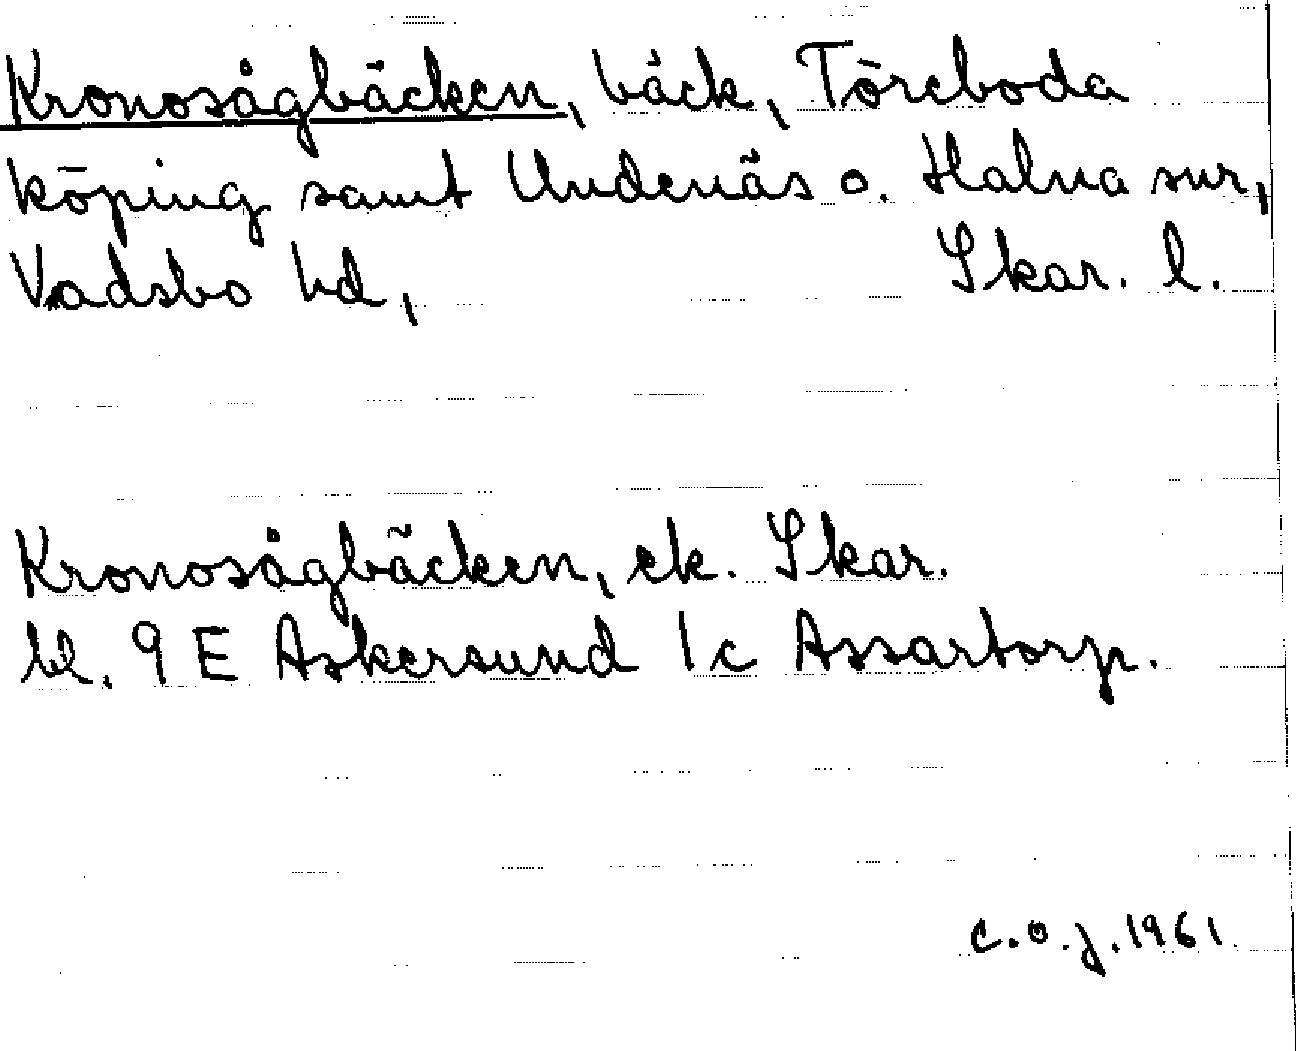 Kronosågbäcken, bäck, Töreboda
köping samt Undenäs o. Halna snr,
Vadsbo hd, Skar. l.
Kronosågbäcken, ek. Skar.
bl. 9 E Askersund 1c Assartorp.
C.O.J. 1961.